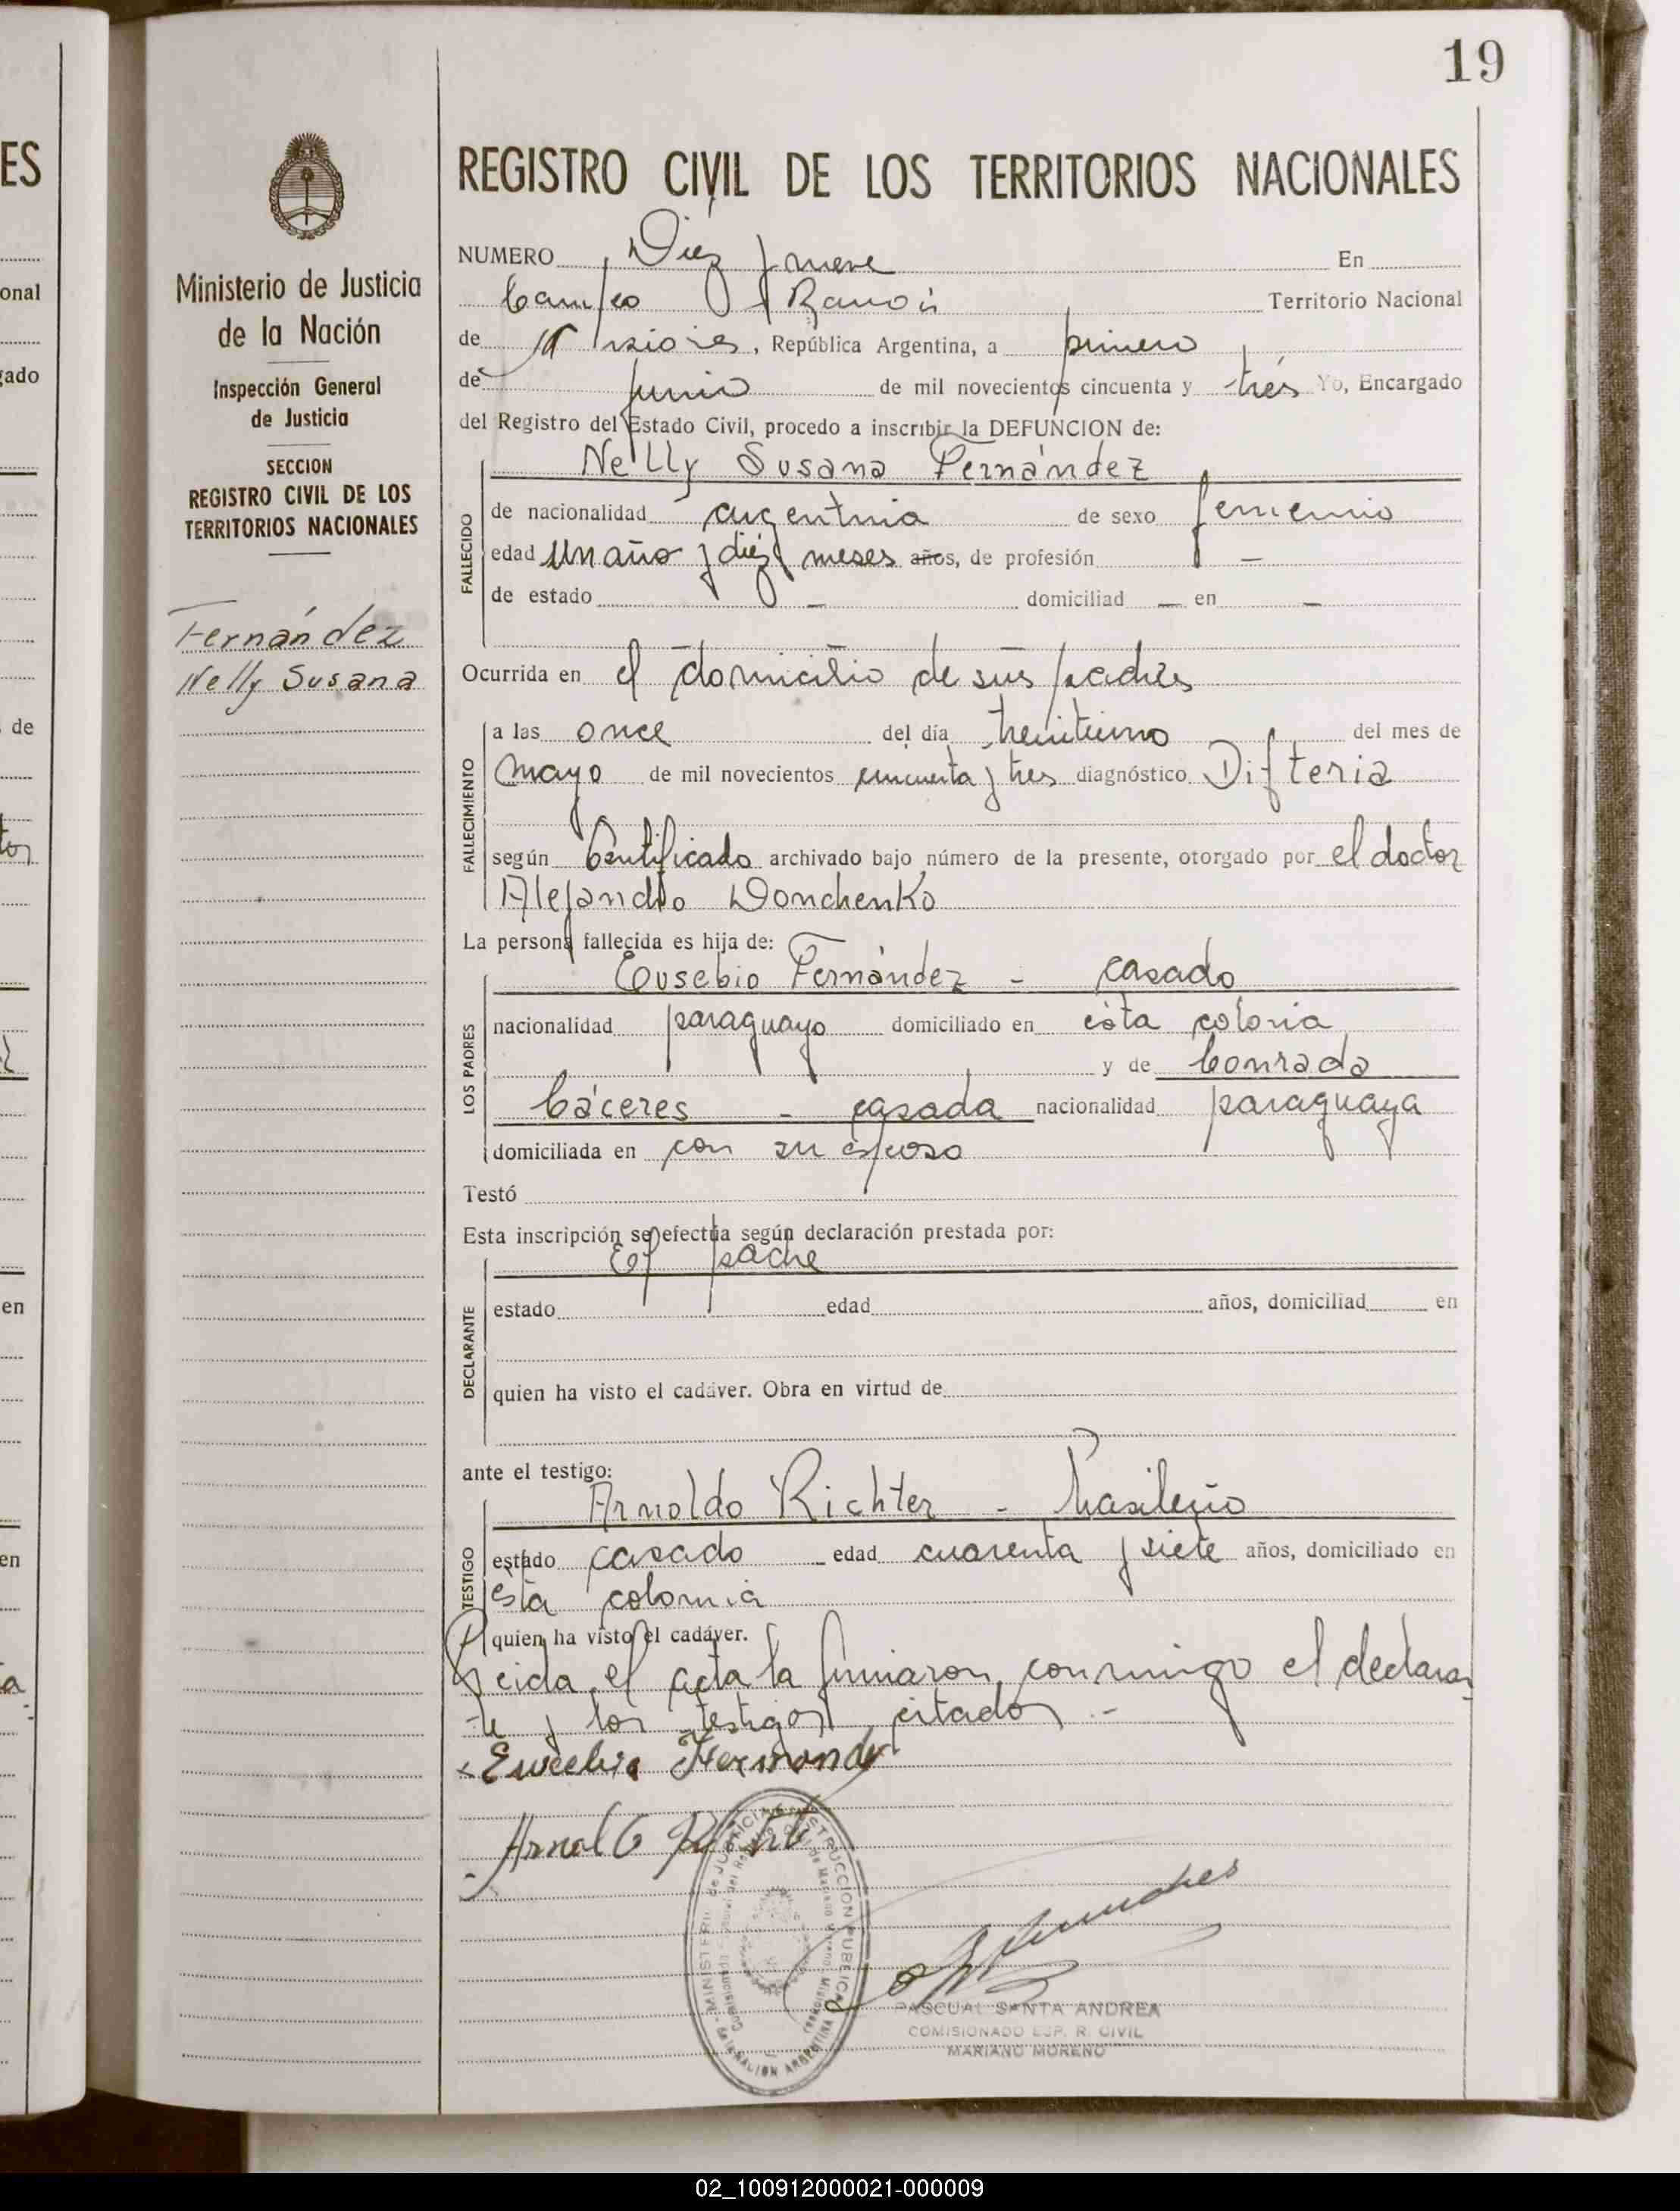 19
ES
onal
gado
de
en
en
Ministerio de Justicia
de la Nación
Inspección General
de Justicia
SECCION
REGISTRO CIVIL DE LOS
TERRITORIOS NACIONALES
Fernández
Nelly Susana
REGISTRO CIVIL DE LOS TERRITORIOS NACIONALES
NUMERO Diez y nueve En
Campo Ramón Territorio Nacional
de Misiones, República Argentina, a primero
de junio de mil novecientos cincuenta y trés Yo, Encargado
del Registro del Estado Civil, procedo a inscribir la DEFUNCION de:
FALLECIDO
Nelly Susana Fernández
de nacionalidad argentina de sexo femenino
edad Un año y diez meses años, de profesión —
de estado — domiciliad — en —
Ocurrida en el domicilio de sus padres
FALLECIMIENTO
a las once del día treintiuno del mes de
mayo de mil novecientos cincuenta y tres diagnóstico Difteria
según Certificado archivado bajo número de la presente, otorgado por el doctor
Alejandro Donchenko
La persona fallecida es hija de:
LOS PADRES
Eusebio Fernández - casado
nacionalidad paraguayo domiciliado en ésta colonia
y de Conrada
Cáceres - casada nacionalidad paraguaya
domiciliada en con su esposo
Testó
Esta inscripción se efectúa según declaración prestada por:
DECLARANTE
El padre
estado edad años, domiciliad en
quien ha visto el cadáver. Obra en virtud de
ante el testigo:
TESTIGO
Arnoldo Richter - brasileño
estado casado edad cuarenta y siete años, domiciliado en
ésta colonia
quien ha visto el cadáver.
Leida el acta la firmaron conmigo el declaran
te y los testigos citados -
Eusebio Fernandez
PASCUAL SANTA ANDREA
COMISIONADO ESP. R. CIVIL
MARIANO MORENO
02_100912000021-000009